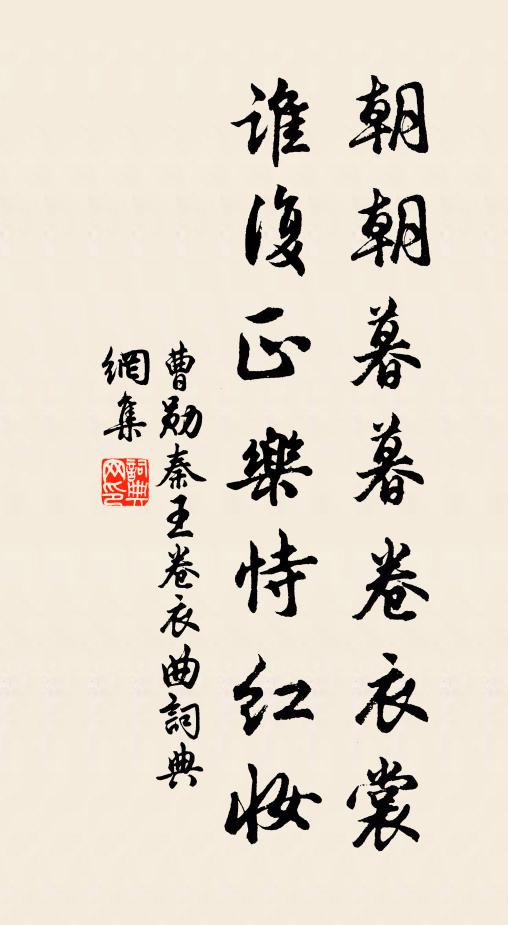 朝朝暮暮卷衣裳
誰復正樂恃紅妝
曹勛秦王卷衣曲詞典
網集
詞典
网印